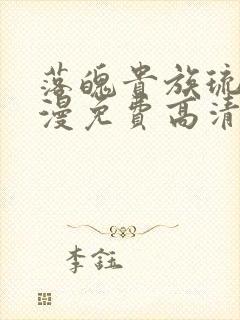 落魄贵族琉
漫免费高清
李鈺